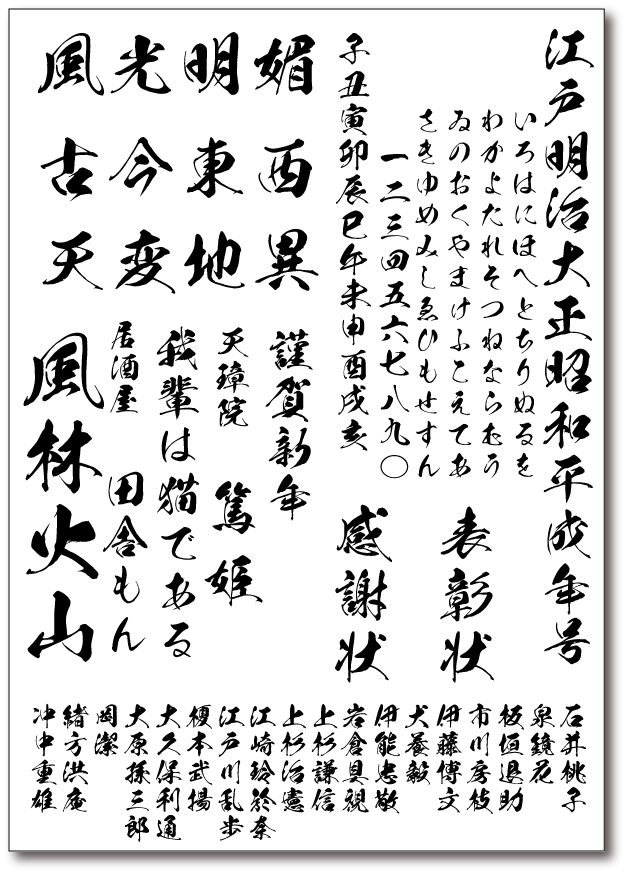 江戸明治大正昭和平成年号
いろはにほへとちりぬるを
わかよたれそつねならむう
ゐのおくやまけふこえてあ
さきゆめみしゑひもせすん
一二三四五六七八九〇
子丑寅卯辰巳午未申酉戌亥
表彰状
感謝状
風光明媚
古今東西
天変地異
謹賀新年
天璋院 篤姫
我輩は猫である
居酒屋 田舎もん
風林火山
石井桃子
泉鏡花
板垣退助
市川房枝
伊藤博文
犬養毅
伊能忠敬
岩倉具視
上杉謙信
上杉治憲
江崎玲於奈
江戸川乱歩
榎本武揚
大久保利通
大原孫三郎
岡潔
緒方洪庵
冲中重雄